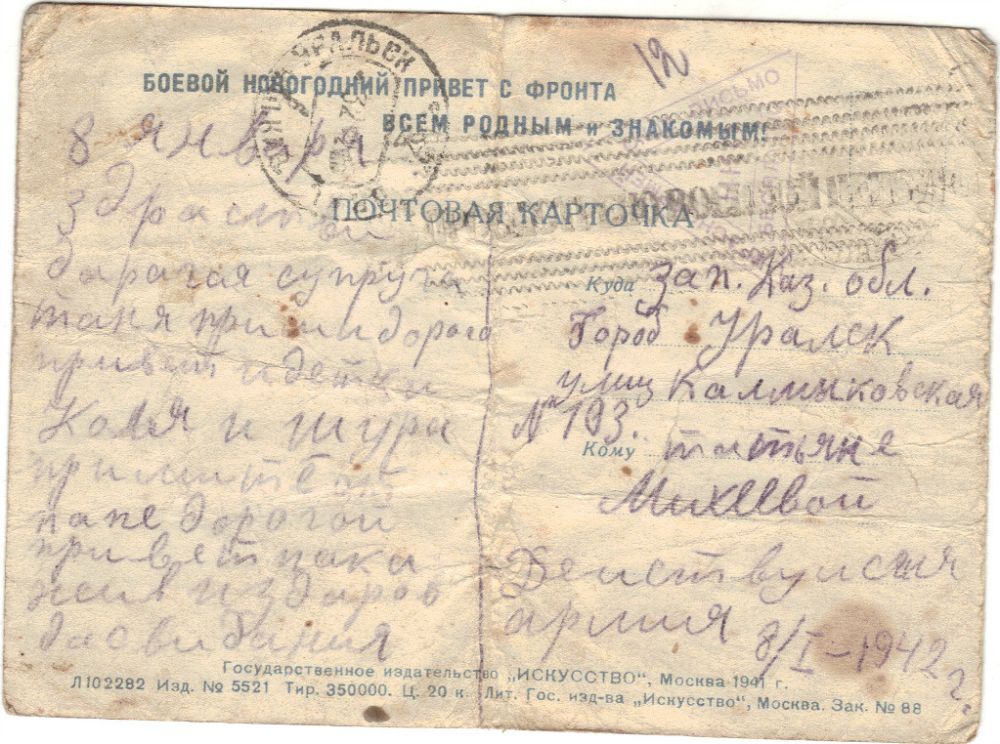 12
БОЕВОЙ НОВОГОДНИЙ ПРИВЕТ С ФРОНТА
ВСЕМ РОДНЫМ и ЗНАКОМЫМ!
УРАЛЬСК
ПИСЬМО
ПОЧТОВАЯ КАРТОЧКА
8 января
здраствой
дарагая супруга
таня прими дорога
привет и детки
Коля и шура
примите от
папе дорогой
привет пака
жив и здаров
дасвидания
Куда зап. Каз. обл.
Город Уралск
улиц Калмыковская
№ 193.
Кому татьяне
Михеевой
Деиствуисая
армия 8/I-1942 г.
Государственное издательство „ИСКУССТВО", Москва 1941 г.
Л102282 Изд. № 5521 Тир. 350000. Ц. 20 к. Лит. Гос. изд-ва „Искусство", Москва. Зак. № 88